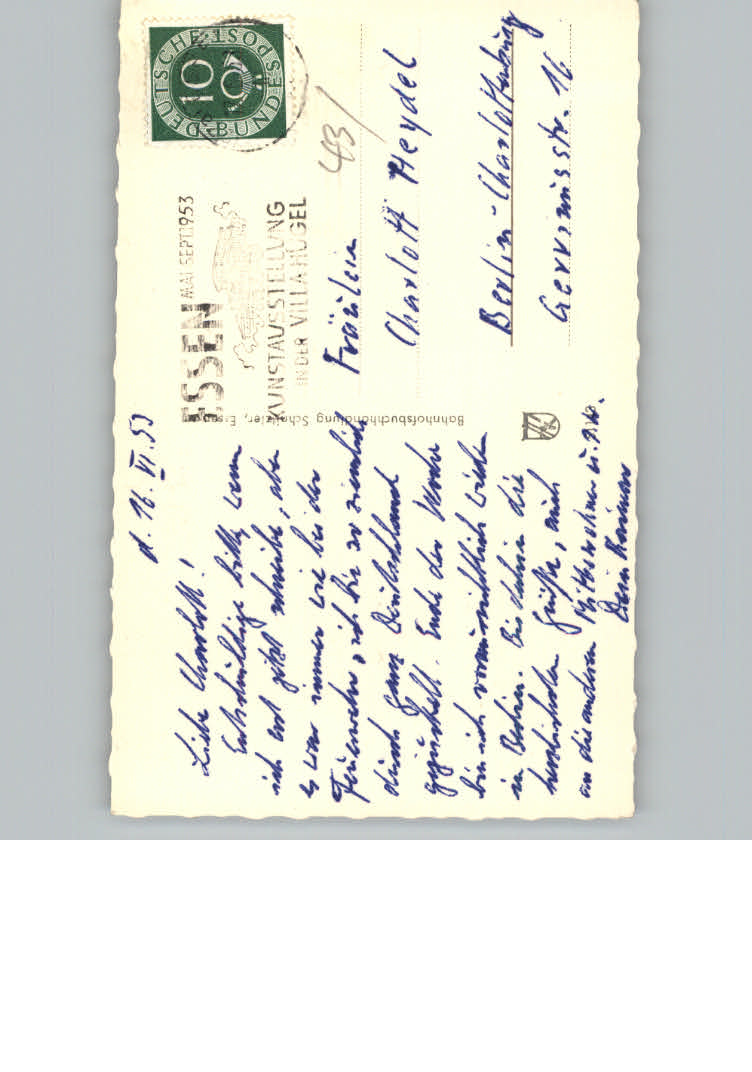 d. 16. VI. 53
Liebe Charlott!
Entschuldige bitte, wenn
ich erst jetzt schreibe, aber
es war immer wie bei der
Feuerwehr, ich bin so ziemlich
durch ganz Deutschland
gegurkelt. Ende der Woche
bin ich vermutlich wieder
in Berlin. Bis dahin die
herzlichsten Grüße, auch
an die anderen Mitbewohner
Dein
Bahnhofsbuchhandlung Schnitzler, Essen
DEUTSCHE BUNDESPOST
10
ESSEN MAI-SEPT. 1953
KUNSTAUSSTELLUNG
IN DER VILLA HÜGEL
43/
Fräulein
Charlott Heydel
Berlin-Charlottenburg
Gervinusstr. 16